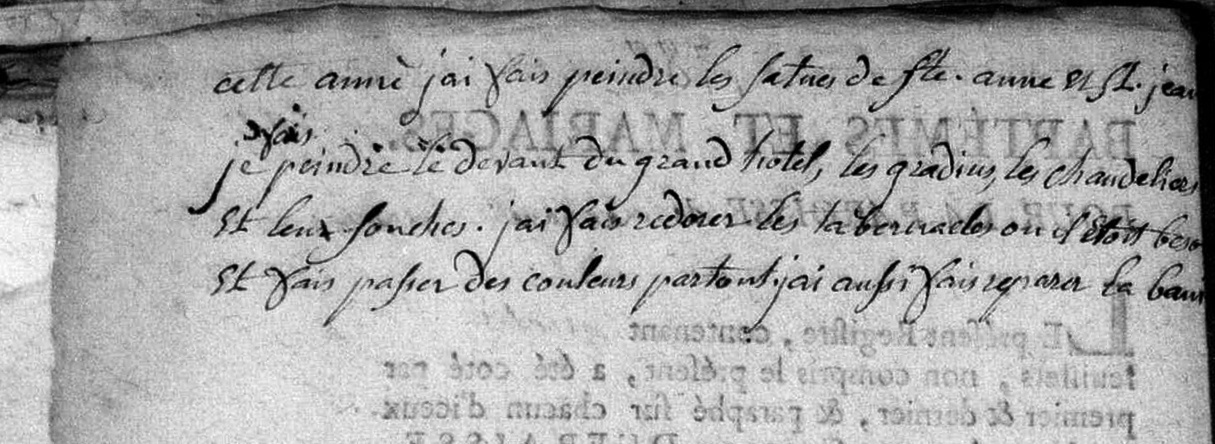 cette annè jai fais peindre les satues de ste. anne et st. jean
fais
je peindre le devant du grand hotel, les gradins, les chandeliers
et leux souches. jai fais redorer les tabernacles ou il etoit beso
et fais passer des couleurs partout. jai aussi fais reparer la bani
BAPTÊMES ET MARIAGES,
LE présent Registre, contenant
feuillets, non compris le présent, a été coté par
premier & dernier, & paraphé sur chacun d'iceux.